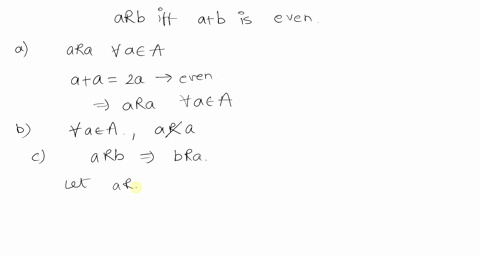 aRb iff a+b is even.
a) aRa ∀a∈A
a+a = 2a → even
⇒ aRa ∀a∈A
b) ∀a∈A, aR̸a
c) aRb ⇒ bRa.
Let aR